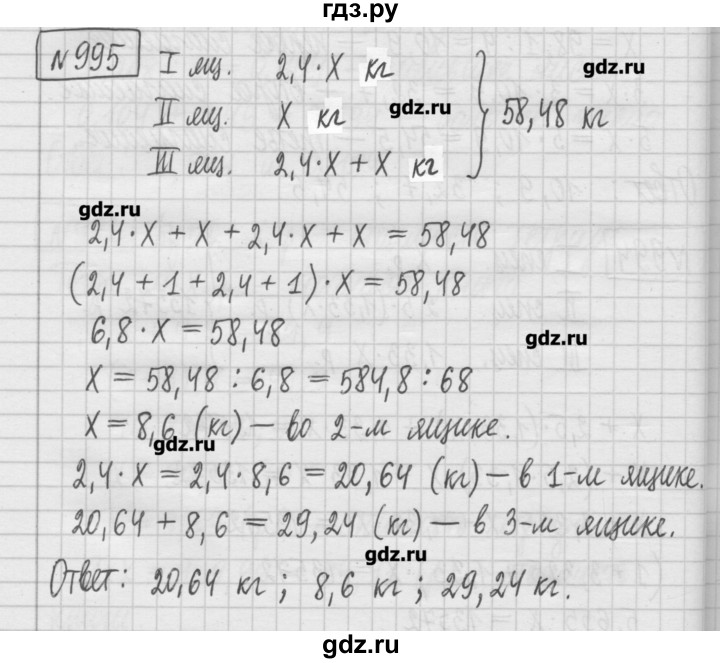 гдз.ру
№995
I ящ. 2,4·X кг
gdz.ru
II ящ. X кг
gdz.ru
58,48 кг
III ящ. 2,4·X + X кг
gdz.ru
2,4·X + X + 2,4·X + X = 58,48
(2,4 + 1 + 2,4 + 1)·X = 58,48
6,8·X = 58,48
gdz.ru
X = 58,48 : 6,8 = 584,8 : 68
X = 8,6 (кг) — во 2-м ящике.
gdz.ru
2,4·X = 2,4·8,6 = 20,64 (кг) — в 1-м ящике.
20,64 + 8,6 = 29,24 (кг) — в 3-м ящике.
gdz.ru
Ответ: 20,64 кг; 8,6 кг; 29,24 кг.
gdz.ru